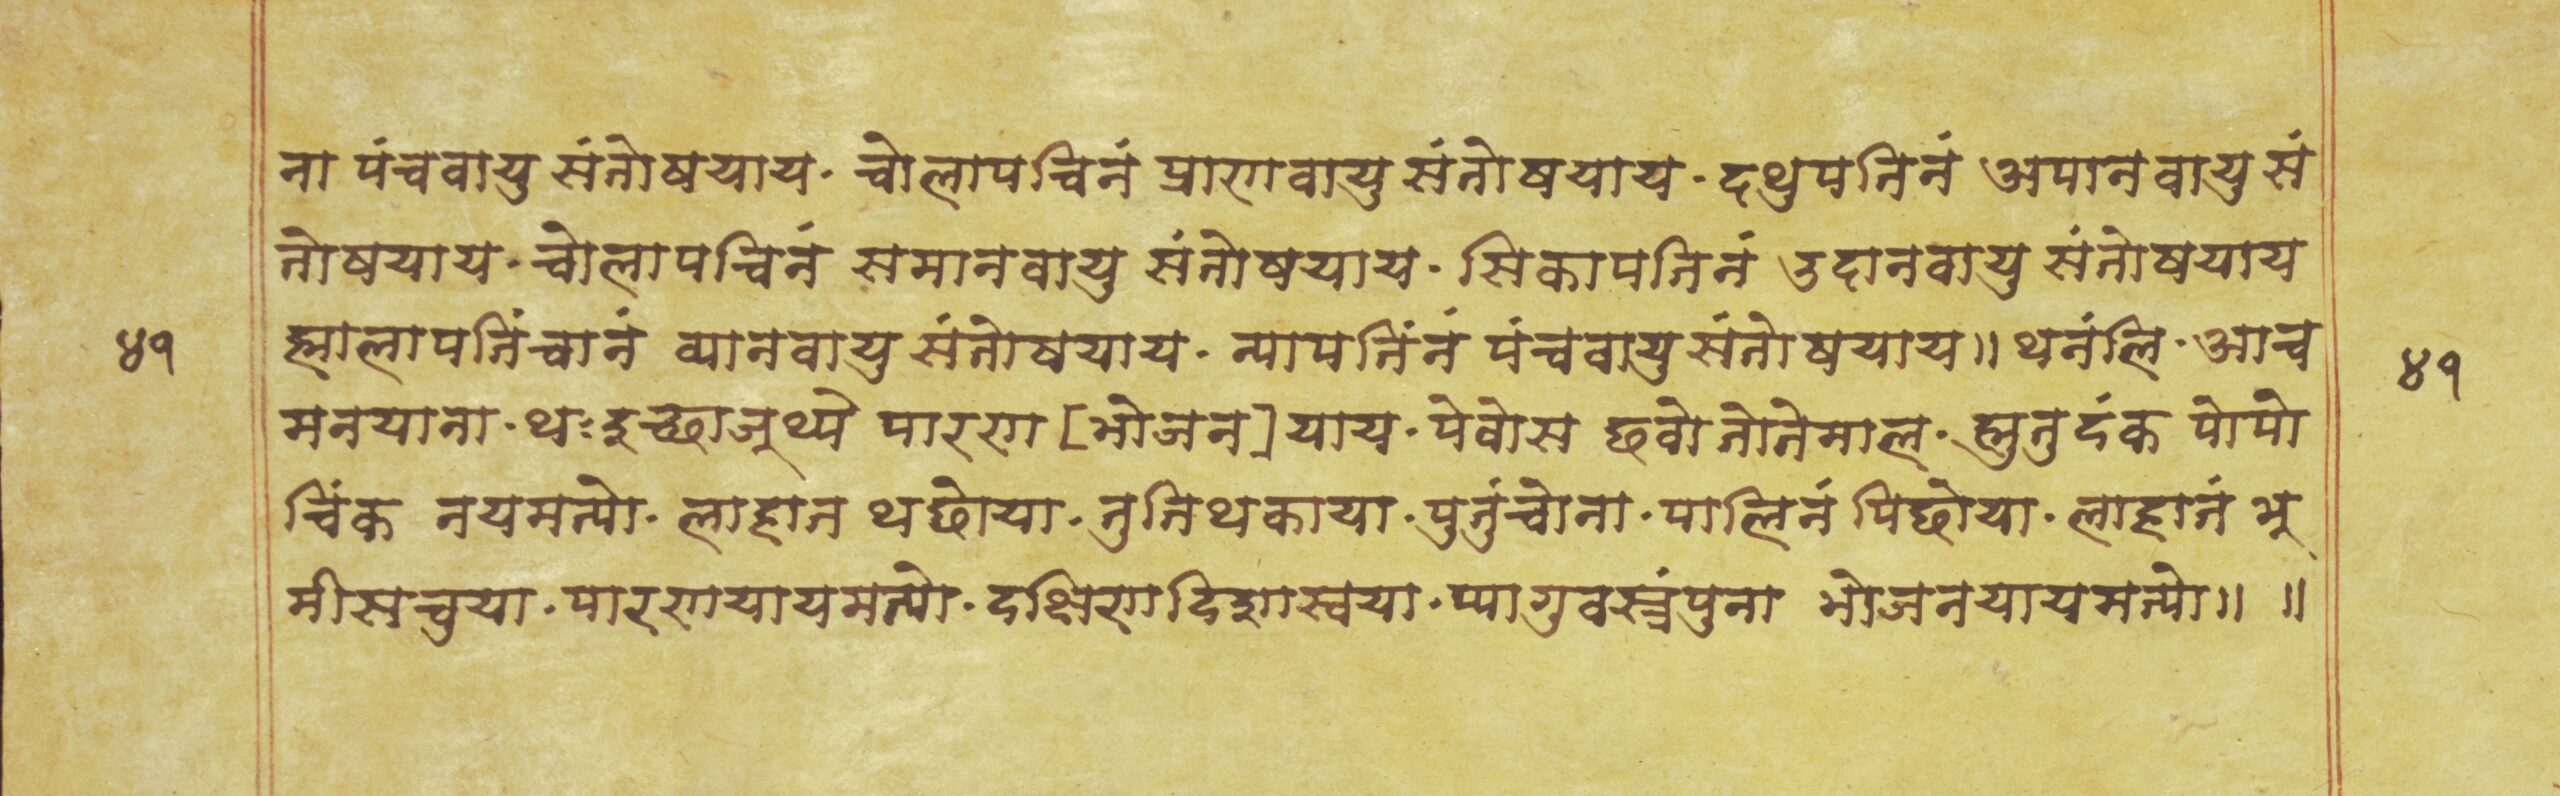 ना पंचवायु संतोषयाय· चोलापचिनं प्राणवायु संतोषयाय· दथुपतिनं अपानवायु सं
तोषयाय· चोलापचिनं समानवायु संतोषयाय· सिकापतिनं उदानवायु संतोषयाय
ह्मालापतिंचानं व्यानवायु संतोषयाय· न्यापतिंनं पंचवायु संतोषयाय॥ थनंलि· आच
मनयाना· थःइच्छाजूथ्यें पारणा [भोजन] याय· पेवोस छवो तोतेमाल· ह्नुतुदंक पोपो
चिंक नयमत्यो· लाहात थछोया· तुतिथकाया· पुतुंचोना· पालिनं पिछोया· लाहातं भू
मीसचुया· पारणायायमत्यो· दक्षिणदिशास्वया· प्यागुवस्त्रंपुना भोजनयायमत्यो॥ ॥
४१
४१